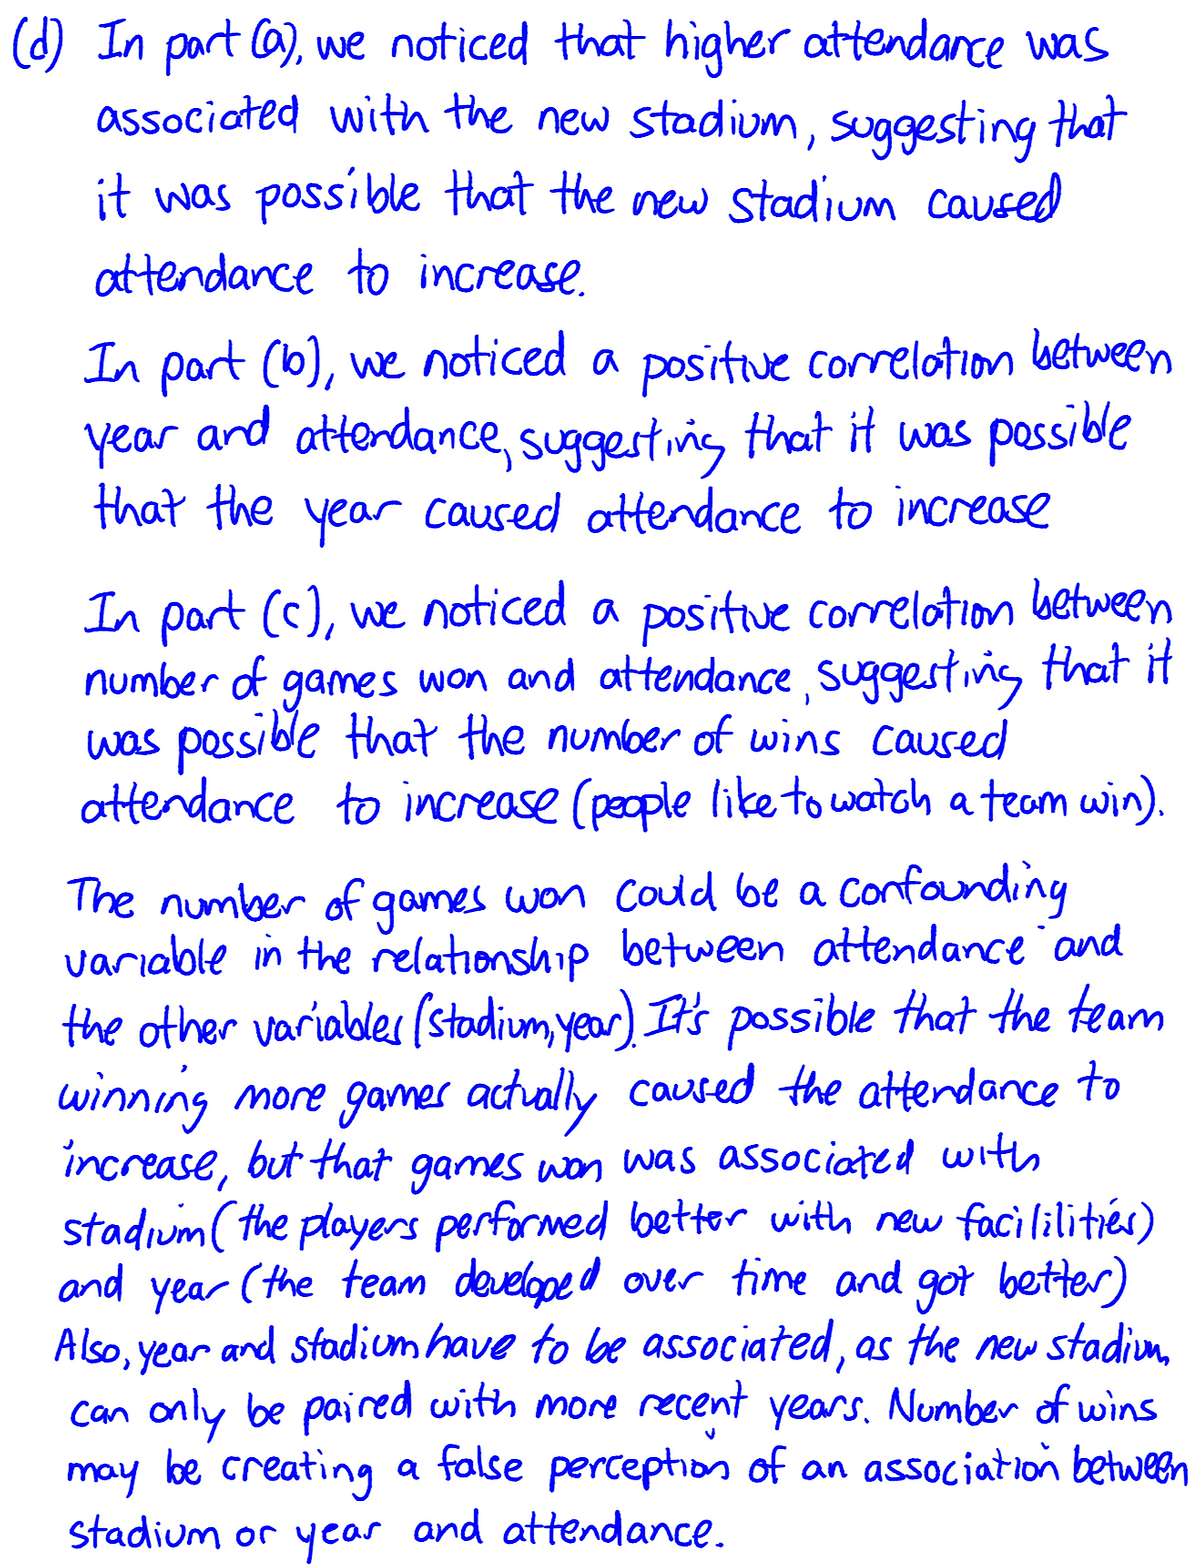 (d) In part (a), we noticed that higher attendance was
associated with the new stadium, suggesting that
it was possible that the new stadium caused
attendance to increase.
In part (b), we noticed a positive correlation between
year and attendance, suggesting that it was possible
that the year caused attendance to increase
In part (c), we noticed a positive correlation between
number of games won and attendance, suggesting that it
was possible that the number of wins caused
attendance to increase (people like to watch a team win).
The number of games won could be a confounding
variable in the relationship between attendance and
the other variables (stadium, year). It's possible that the team
winning more games actually caused the attendance to
increase, but that games won was associated with
stadium (the players performed better with new facililities)
and year (the team developed over time and got better)
Also, year and stadium have to be associated, as the new stadium
can only be paired with more recent years. Number of wins
may be creating a false perception of an association between
stadium or year and attendance.